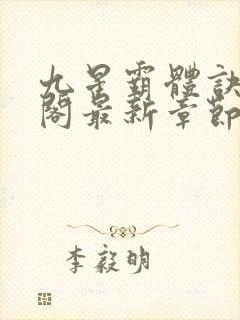 九星霸體訣
閣最新章節
李毅明